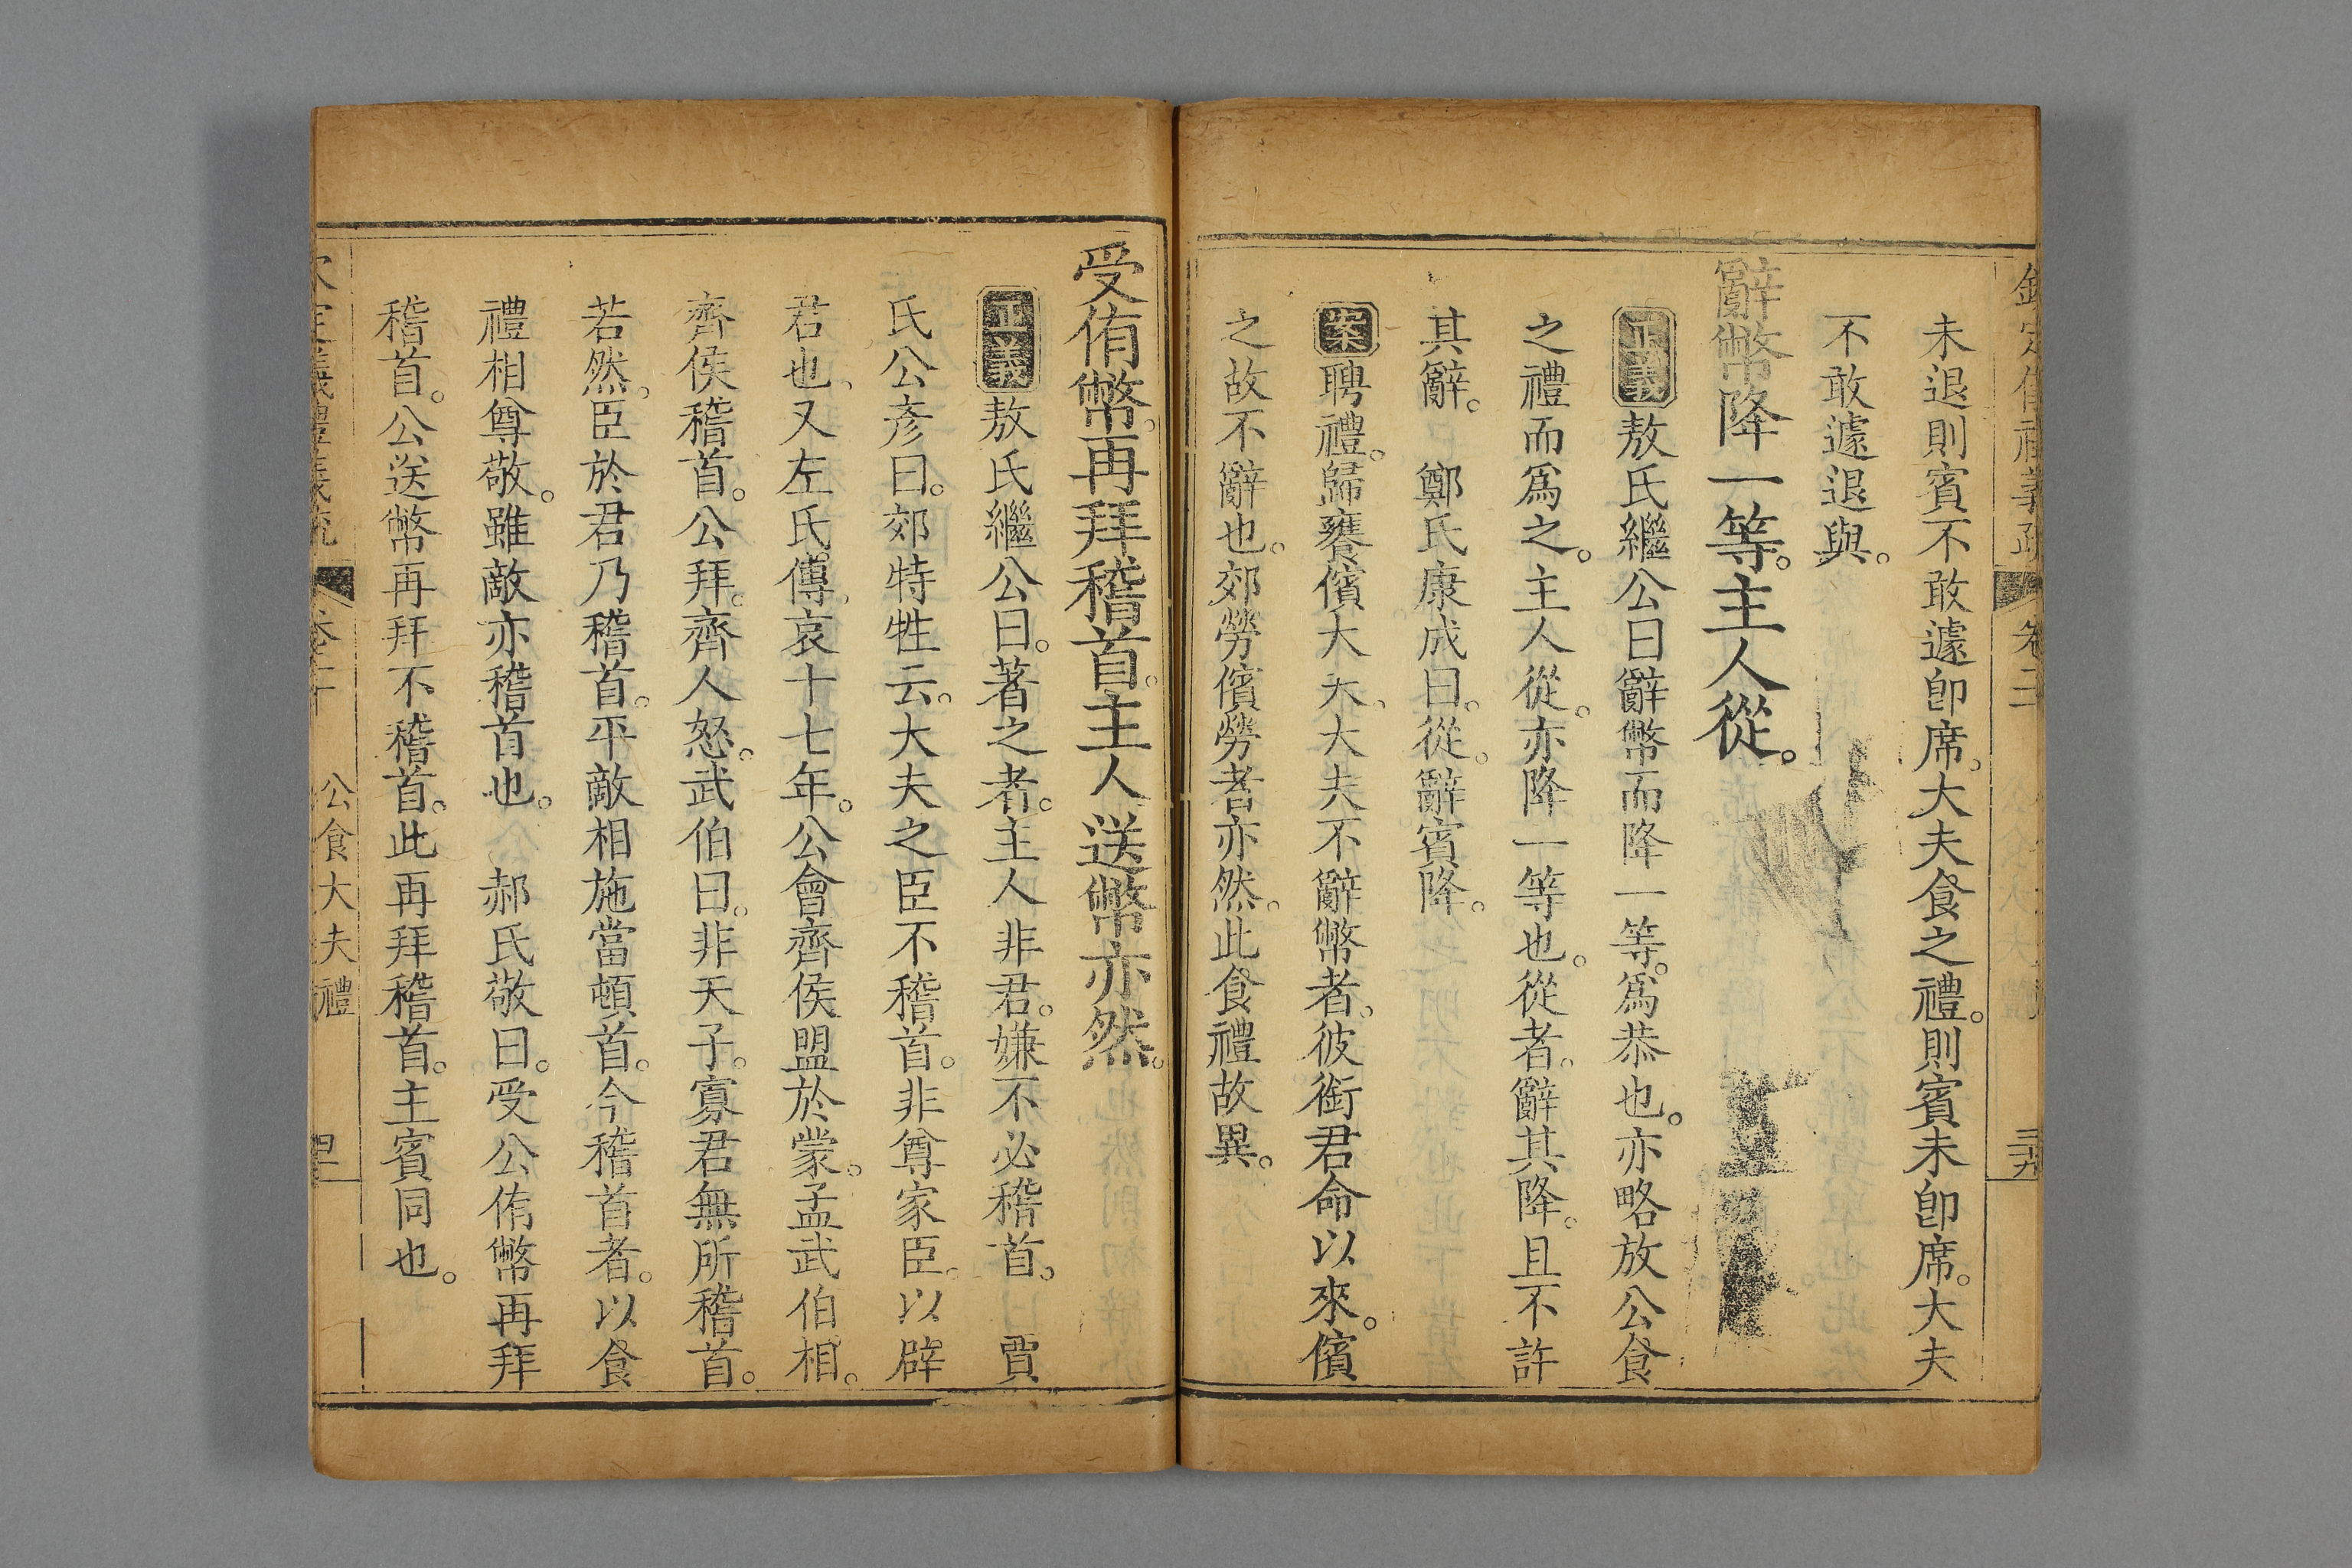 未退則賓不敢遽卽席。大夫食之禮。則賓未卽席。大夫
不敢遽退與。
辭幣降一等。主人從。
正義敖氏繼公曰辭幣而降一等。爲恭也。亦略放公食
之禮而爲之。主人從。亦降一等也。從者。辭其降。且不許
其辭。鄭氏康成曰。從。辭賓降。
案聘禮。歸饔儐大夫。大夫不辭幣者。彼銜君命以來。儐
之故不辭也。郊勞儐勞者亦然。此食禮故異。
受侑幣。再拜稽首。主人送幣亦然。
正義敖氏繼公曰。著之者。主人非君。嫌不必稽首。賈
氏公彥曰。郊特牲云。大夫之臣不稽首。非尊家臣。以辟
君也。又左氏傳。哀十七年。公會齊侯盟於蒙。孟武伯相。
齊侯稽首。公拜。齊人怒。武伯曰。非天子。寡君無所稽首。
若然。臣於君乃稽首。平敵相施當頓首。今稽首者。以食
禮相尊敬。雖敵亦稽首也。郝氏敬曰。受公侑幣再拜
稽首。公送幣再拜不稽首。此再拜稽首。主賓同也。
公食大夫禮